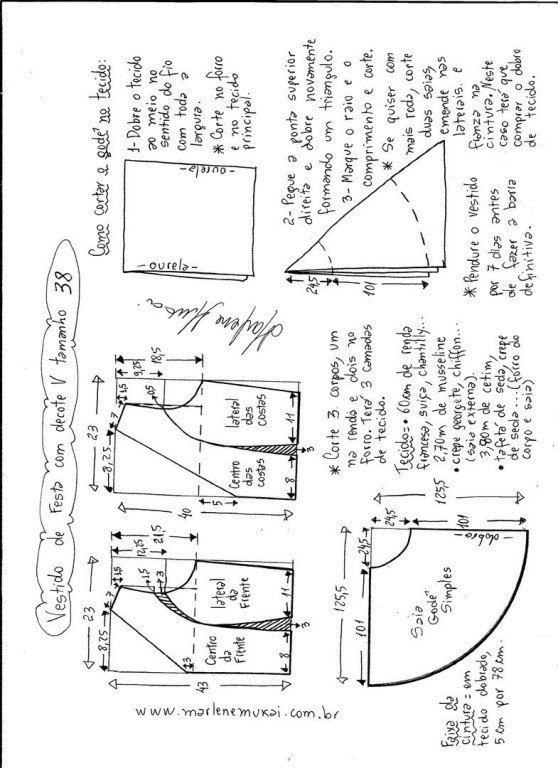 Vestido de Festa com decote V tamanho 38
43
23
8,25
7
1,5
12,25
21,5
1,5
3
Centro
da
Frente
lateral
da
Frente
3
8
11
3
40
23
8,25
7
1,5
9,25
18,5
0,5
Centro
das
costas
lateral
das
costas
5
8
11
3
www.marlenemukai.com.br
Como cortar o godê no tecido:
-ourela-
-ourela-
1- Dobre o tecido
ao meio no
sentido do fio
com toda a
largura.
* Corte no forro
e no tecido
principal.
24,5
101
2- Pegue a ponta superior
direita e dobre novamente
formando um triangulo.
3- Marque o raio e o
comprimento e corte.
* Se quiser com
mais roda, corte
duas saias,
emende nas
laterais e
franza na
cintura. Neste
caso terá que
comprar o dobro
de tecido.
* Pendure o vestido
por 7 dias antes
de fazer a barra
definitiva.
* Corte 3 corpos, um
na renda e dois no
forro. Terá 3 camadas
de tecido.
Tecido= • 60cm de renda
francesa, suiça, chantilly...
2,70m de musseline
• crepe georgete, chiffon...
(saia externa).
3,80m de cetim,
• tafetá de seda, crepe
de seda ... (forro do
corpo e saia)
125,5
101
24,5
125,5
24,5
101
-dobra-
Saia
Godê
Simples
Faixa da
cintura = em
tecido dobrado,
5cm por 78cm.